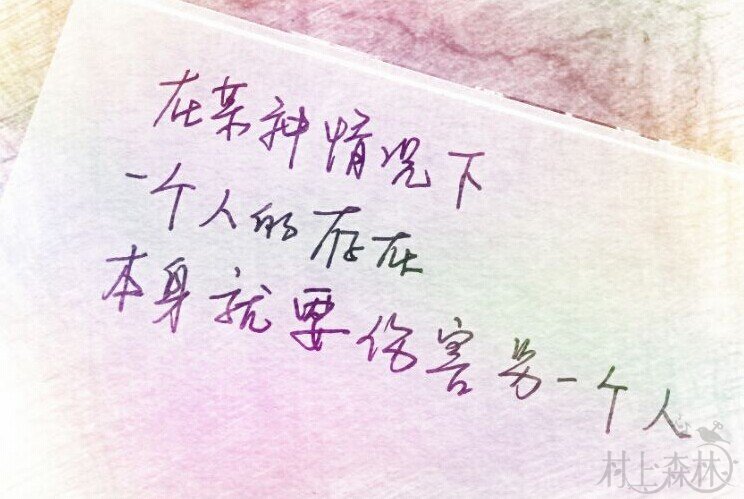 在某种情况下
一个人的存在
本身就要伤害另一个人
村上森林